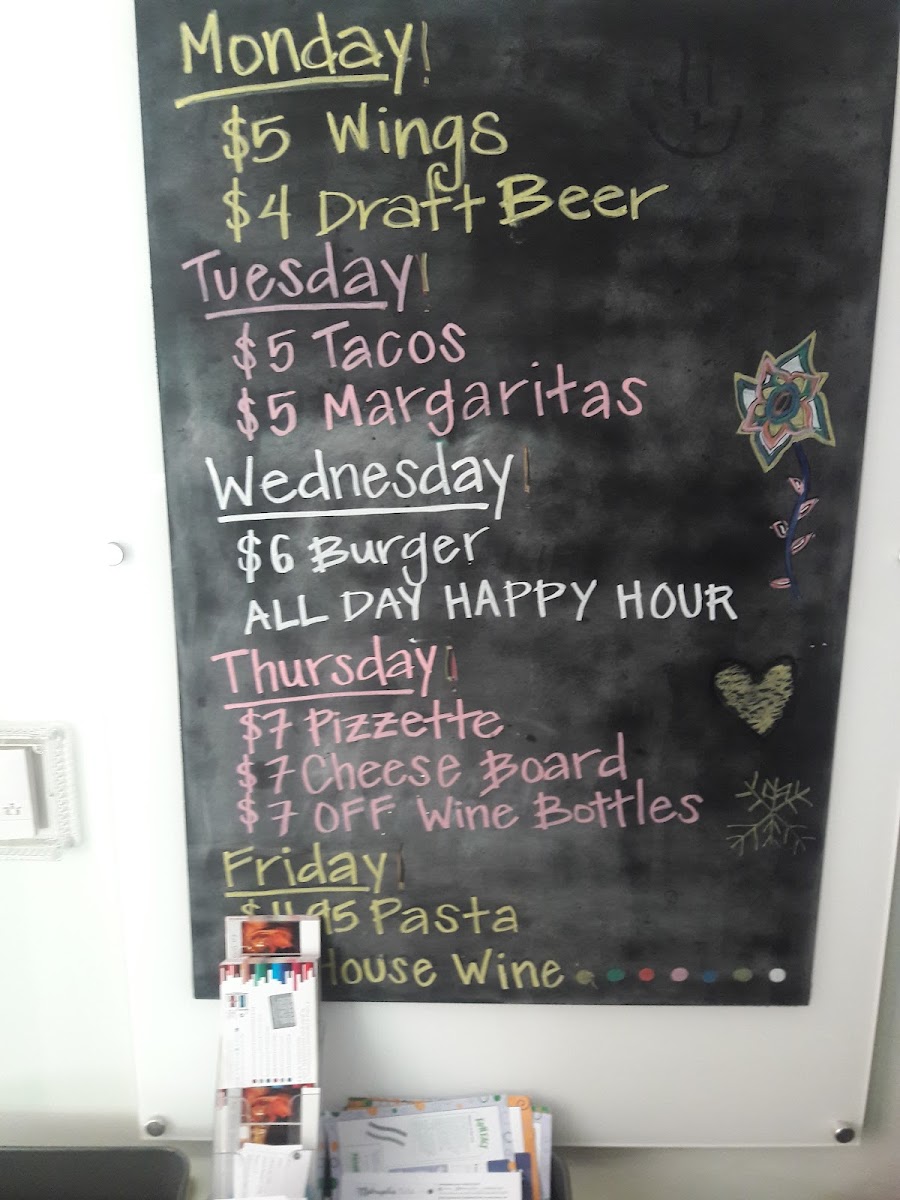 Monday!
$5 Wings
$4 Draft Beer
Tuesday!
$5 Tacos
$5 Margaritas
Wednesday!
$6 Burger
ALL DAY HAPPY HOUR
Thursday!
$7 Pizzette
$7 Cheese Board
$7 OFF Wine Bottles
Friday!
$11.95 Pasta
House Wine